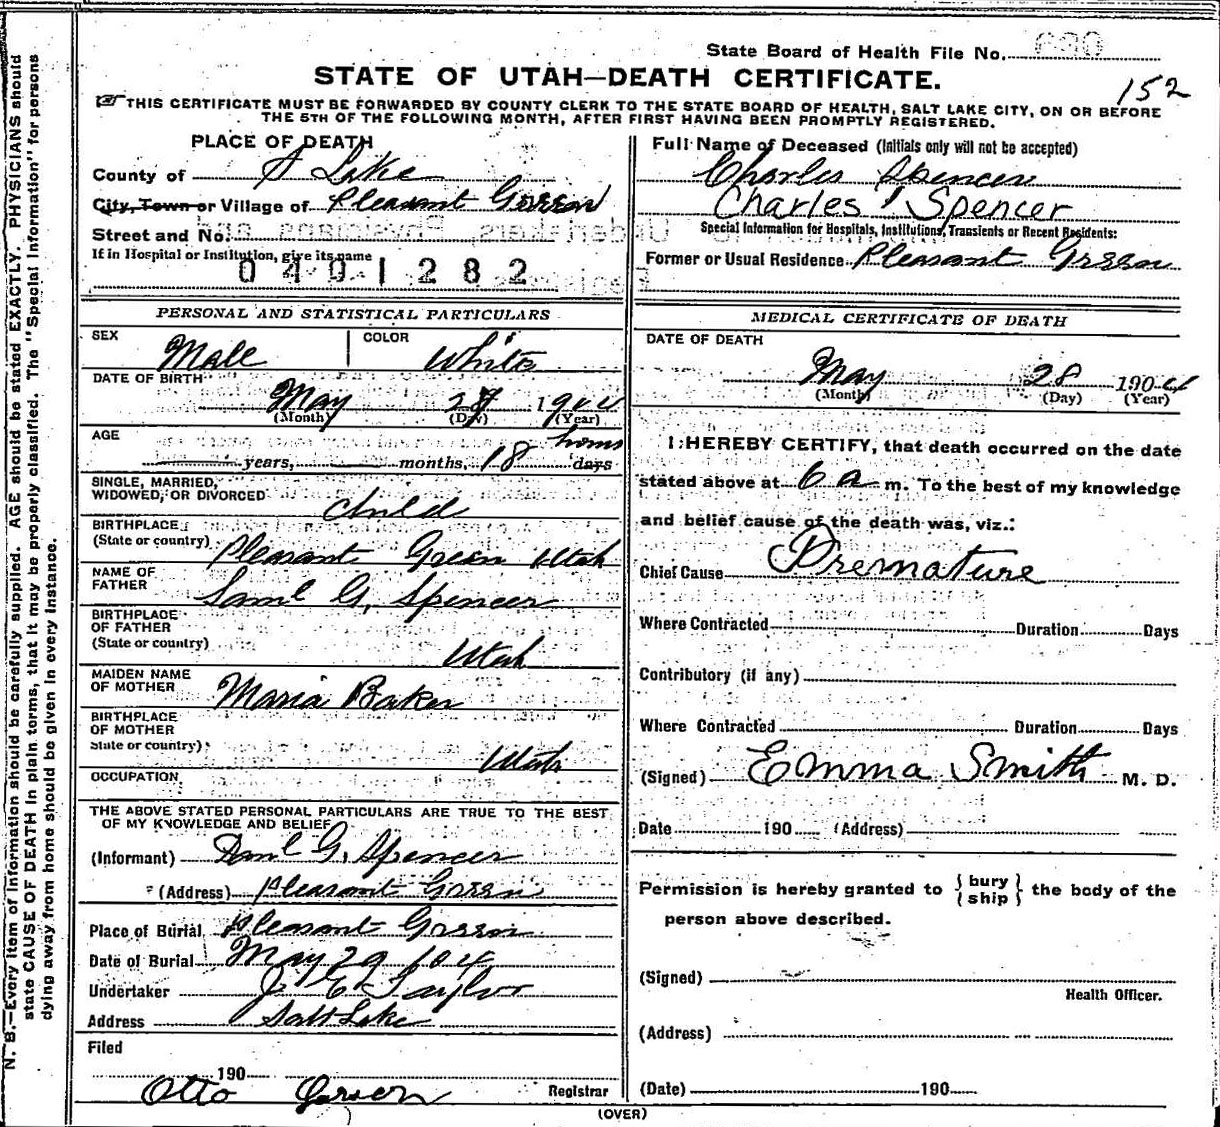 State Board of Health File No.
STATE OF UTAH—DEATH CERTIFICATE.
152
THIS CERTIFICATE MUST BE FORWARDED BY COUNTY CLERK TO THE STATE BOARD OF HEALTH, SALT LAKE CITY, ON OR BEFORE
THE 5TH OF THE FOLLOWING MONTH, AFTER FIRST HAVING BEEN PROMPTLY REGISTERED.
PLACE OF DEATH
County of S Lake
City, Town or Village of Pleasant Green
Street and No.
If in Hospital or Institution, give its name
0401282
Full Name of Deceased (Initials only will not be accepted)
Charles Spencer
Charles Spencer
Special Information for Hospitals, Institutions, Transients or Recent Residents:
Former or Usual Residence Pleasant Green
PERSONAL AND STATISTICAL PARTICULARS
SEX Male COLOR White
DATE OF BIRTH
May 27 1904
(Month) (Day) (Year)
AGE hours
years, months, 18 days
SINGLE, MARRIED,
WIDOWED, OR DIVORCED Child
BIRTHPLACE
(State or country) Pleasant Green Utah
NAME OF
FATHER Saml G. Spencer
BIRTHPLACE
OF FATHER
(State or country) Utah
MAIDEN NAME
OF MOTHER Maria Baker
BIRTHPLACE
OF MOTHER
State or country) Utah
OCCUPATION
THE ABOVE STATED PERSONAL PARTICULARS ARE TRUE TO THE BEST
OF MY KNOWLEDGE AND BELIEF
(Informant) Saml G. Spencer
(Address) Pleasant Green
Place of Burial Pleasant Green
Date of Burial May 29 104
Undertaker J E Taylor
Address Salt Lake
Filed
190
Otto Registrar
MEDICAL CERTIFICATE OF DEATH
DATE OF DEATH
May 28 1904
(Month) (Day) (Year)
I HEREBY CERTIFY, that death occurred on the date
stated above at 6 a m. To the best of my knowledge
and belief cause of the death was, viz.:
Chief Cause Premature
Where Contracted Duration Days
Contributory (if any)
Where Contracted Duration Days
(Signed) Emma Smith M. D.
Date 190 (Address)
Permission is hereby granted to {bury
ship} the body of the
person above described.
(Signed)
Health Officer.
(Address)
(Date) 190
(OVER)
N. B.—Every item of information should be carefully supplied. AGE should be stated EXACTLY. PHYSICIANS should
state CAUSE OF DEATH in plain terms, that it may be properly classified. The "Special Information" for persons
dying away from home should be given in every instance.